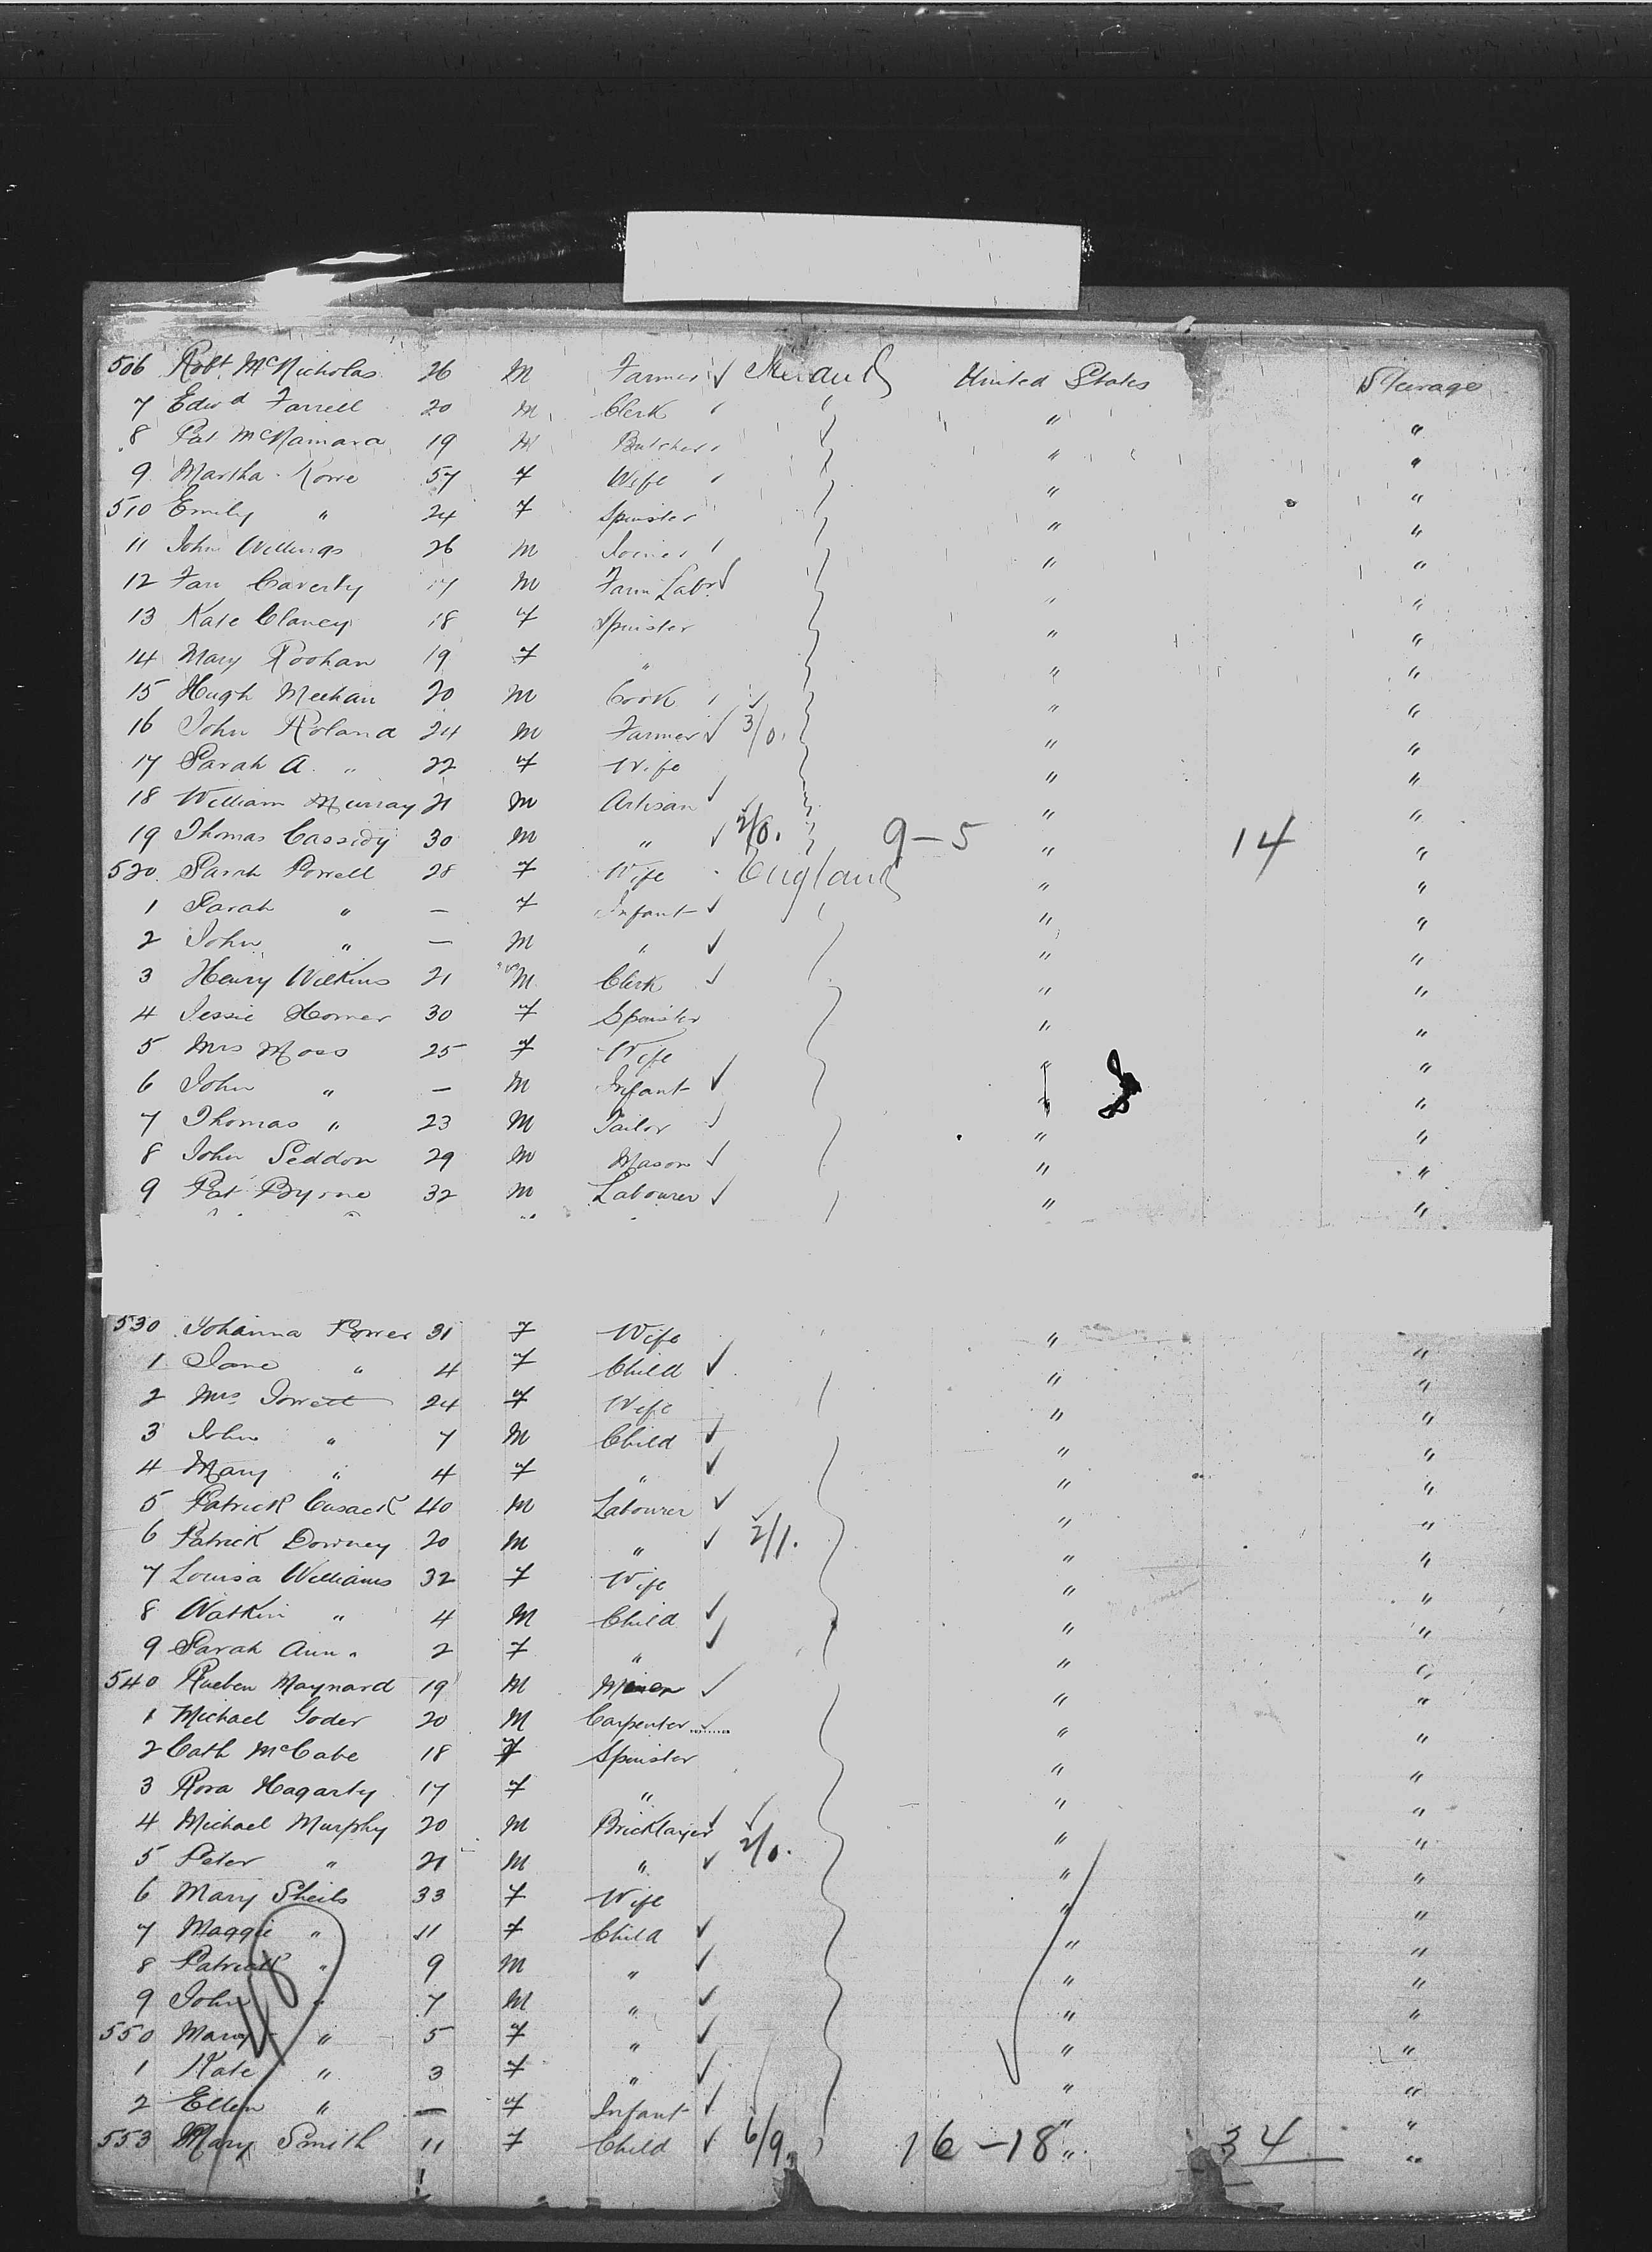 506 Robt. McNicholas 26 M Farmer ✓ Ireland United States Steerage
7 Edwd Farrell 20 M Clerk " " "
8 Pat McNamara 19 M Butcher " "
9 Martha Rowe 57 F Wife " "
510 Emily " 24 F Spinster " "
11 John Willings 26 M Joiner " "
12 Farm Labr ✓ M " "
13 Kate Clancy 18 F Spinster " "
14 Mary Roohan 19 F " " "
15 Hugh Meehan 20 M Cook ✓ " "
16 John Roland 24 M Farmer ✓ 3/0. " "
17 Sarah A. " 22 F Wife " "
18 William Murray 21 M Artisan ✓ " "
19 Thomas Cassidy 30 M " ✓ 2/0. 9-5 " 14 "
520 Sarah Powell 28 F Wife England " "
1 Sarah " — F Infant ✓ " "
2 John " — M " ✓ " "
3 Henry Wilkins 21 M Clerk ✓ " "
4 Jessie Homer 30 F Spinster " "
5 Mrs Moss 25 F Wife " "
6 John " — M Infant ✓ " "
7 Thomas " 23 M Tailor ✓ " "
8 John Seddon 29 M Mason ✓ " "
9 Pat Byrne 32 M Labourer ✓ " "
530 Johanna Power 31 F Wife " "
1 Jane " 4 F Child ✓ " "
2 Mrs 24 F Wife " "
3 John " 7 M Child ✓ " "
4 Mary " 4 F " ✓ " "
5 Patrick Cusack 40 M Labourer ✓ " "
6 Patrick Downey 20 M " ✓ 2/1. " "
7 Louisa Williams 32 F Wife " "
8 Watkin " 4 M Child ✓ " "
9 Sarah Ann " 2 F " ✓ " "
540 Rueben Maynard 19 M Miner ✓ " "
1 Michael Goder 20 M Carpenter " "
2 Cath McCabe 18 F Spinster " "
3 Rosa Hagarty 17 F " " "
4 Michael Murphy 20 M Bricklayer ✓ " "
5 Peter " 21 M " ✓ 2/0. " "
6 Mary Sheils 33 F Wife " "
7 Maggie " 11 F Child ✓ " "
8 Patrick " 9 M " ✓ " "
9 John " 7 M " ✓ " "
550 Mary " 5 F " ✓ " "
1 Kate " 3 F " ✓ " "
2 Ellen " — F Infant ✓ " "
553 Mary Smith 11 F Child ✓ 6/9. 16-18 " 34 "